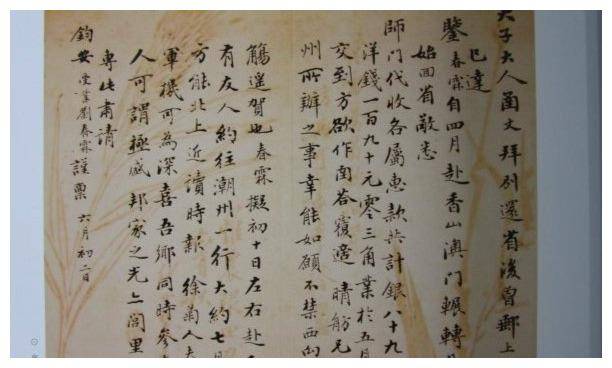 夫子大人函丈拜別還省後曾郵上
已達
鑒春霖自四月赴香山澳門輾轉
始回省敬悉
師門代收各屬惠款共計銀八十九
洋錢一百九十元零三角業於五月
交到方欲作函答覆適晴舫兄
州所辦之事幸能如願不禁西向
觴遥賀也春霖擬初十日左右赴
有友人約往潮州一行大約七
方能北上近讀時報徐菊人
軍機可為深喜吾鄉同時參
人可謂極盛邦家之光亦閭里
專此肅請
鈞安受業劉春霖謹稟六月初二日